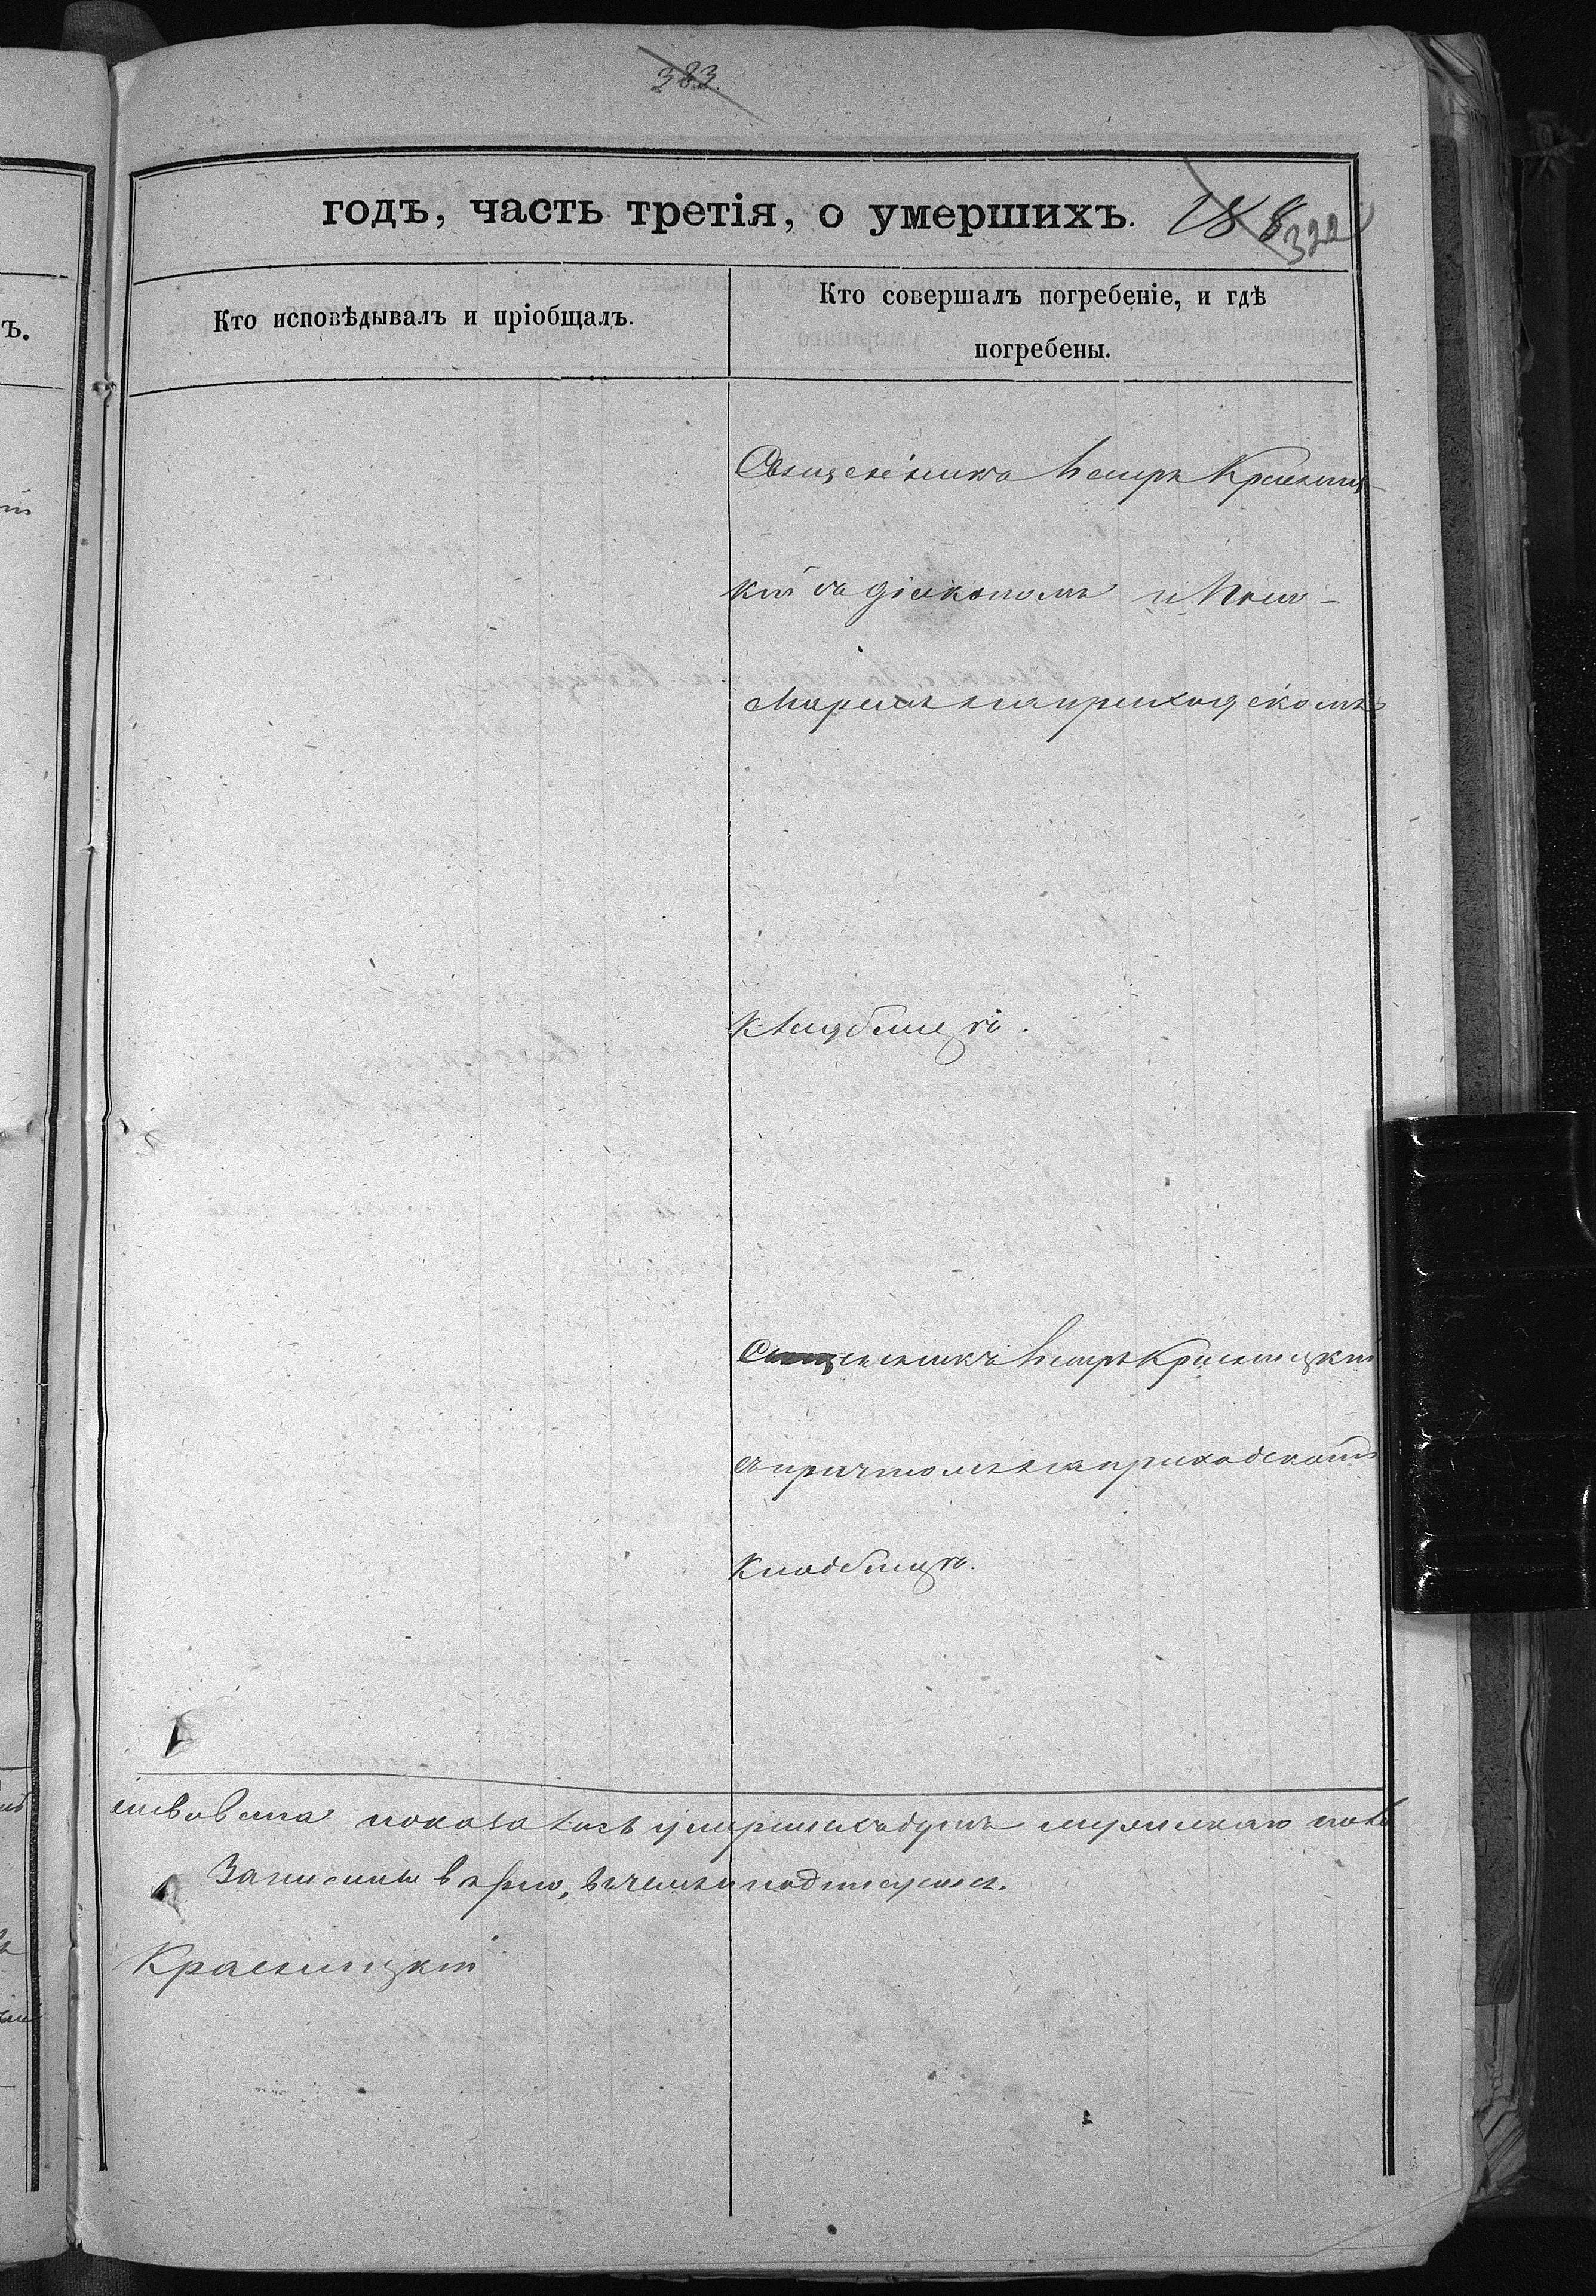 383
годъ, часть третія, о умершихъ. 188
322
Кто исповѣдывалъ и пріобщалъ.
Кто совершалъ погребеніе, и гдѣ
погребены.
Священникъ Петръ Красниц-
кій съ діакономъ и Поно-
маремъ на приходскомъ
кладбищѣ.
Священникъ Петръ Красницкій
съ причтомъ на приходскомъ
кладбищѣ.
показалось умершихъ душъ мужескаго пола
Записаны вѣрно, въ чемъ и подписуемся.
Красницкій